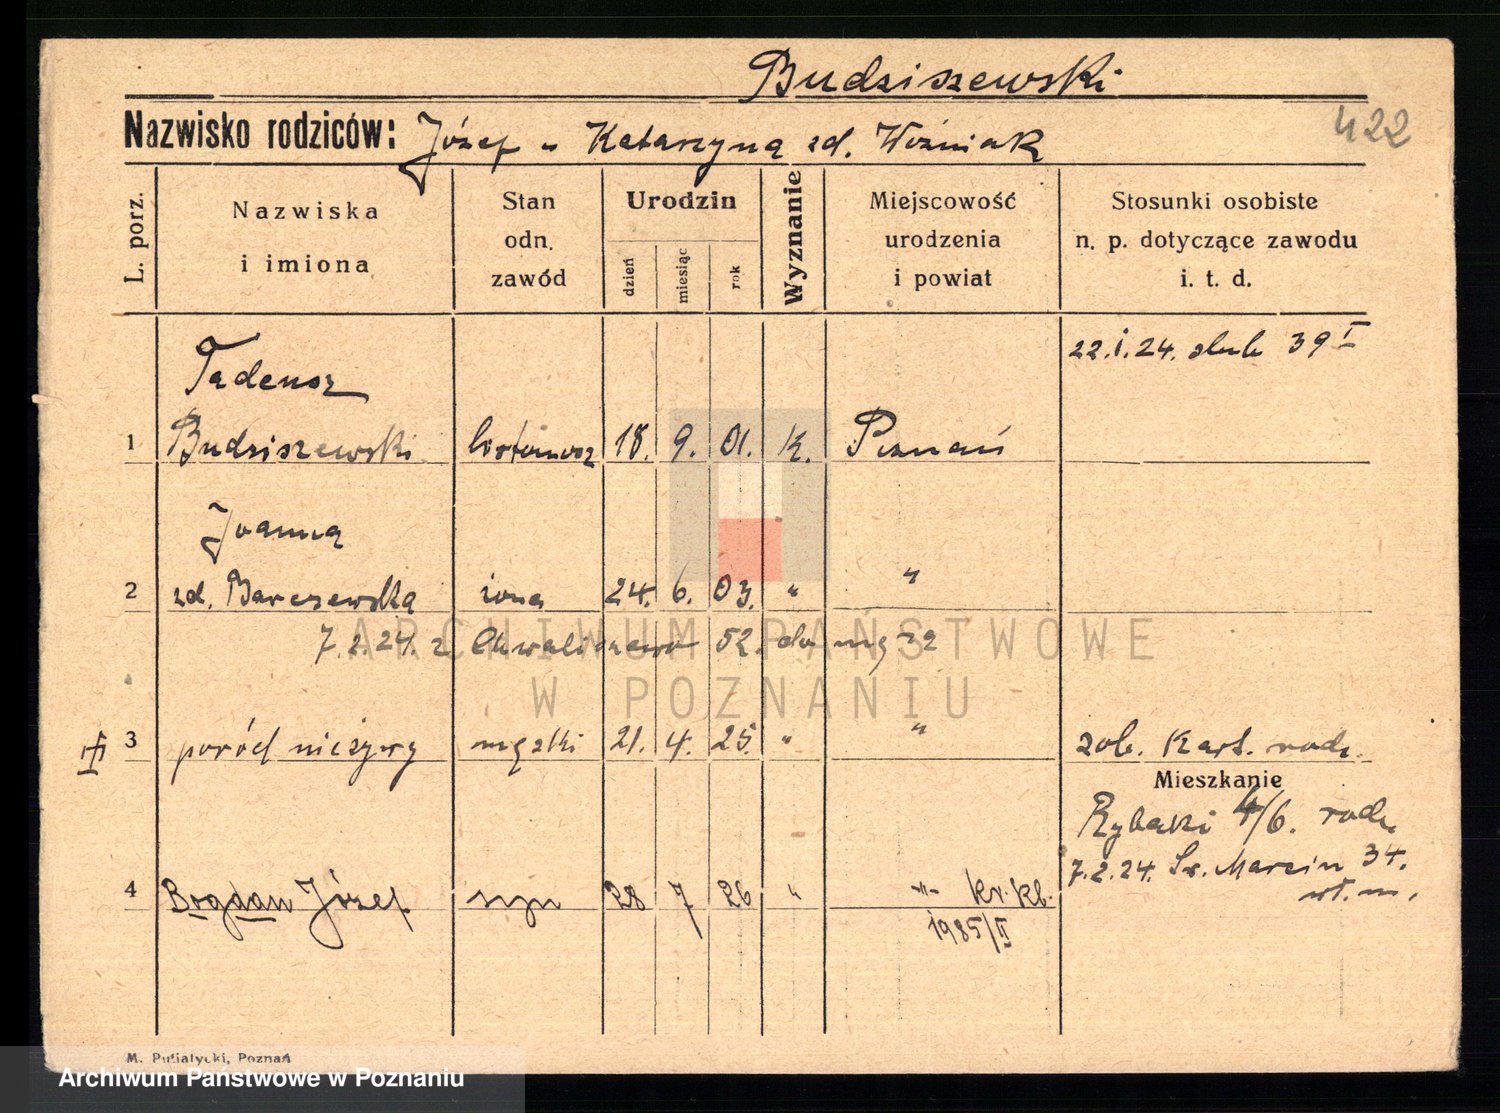 Budziszewski
422
Nazwisko rodziców: Józef u Katarzyna zd. Woźniak
L. porz.
Nazwiska
i imiona
Stan
odn.
zawód
Urodzin
dzień
miesiąc
rok
Wyznanie
Miejscowość
urodzenia
i powiat
Stosunki osobiste
n. p. dotyczące zawodu
i. t. d.
22.1.24. slub 39 I
Tadeusz
1 Budziszewski listonosz 18. 9. 01. K. Poznań
Joanna
2 zd. Barczewska żona 24. 6. 03. " "
7.2.24. z Chwaliszewo 52. do mę
ARCHIWUM PAŃSTWOWE
W POZNANIU
3 poród nieżywy męzki 21. 4. 25. " " zob. Kart. rodz.
Mieszkanie
Rybaki 4/6. rodz.
7.2.24. Św. Marcin 34.
4 Bogdan Józef syn 28 7 26 " -"- kr. kl.
1985/II
M. Putiatycki, Poznań
Archiwum Państwowe w Poznaniu